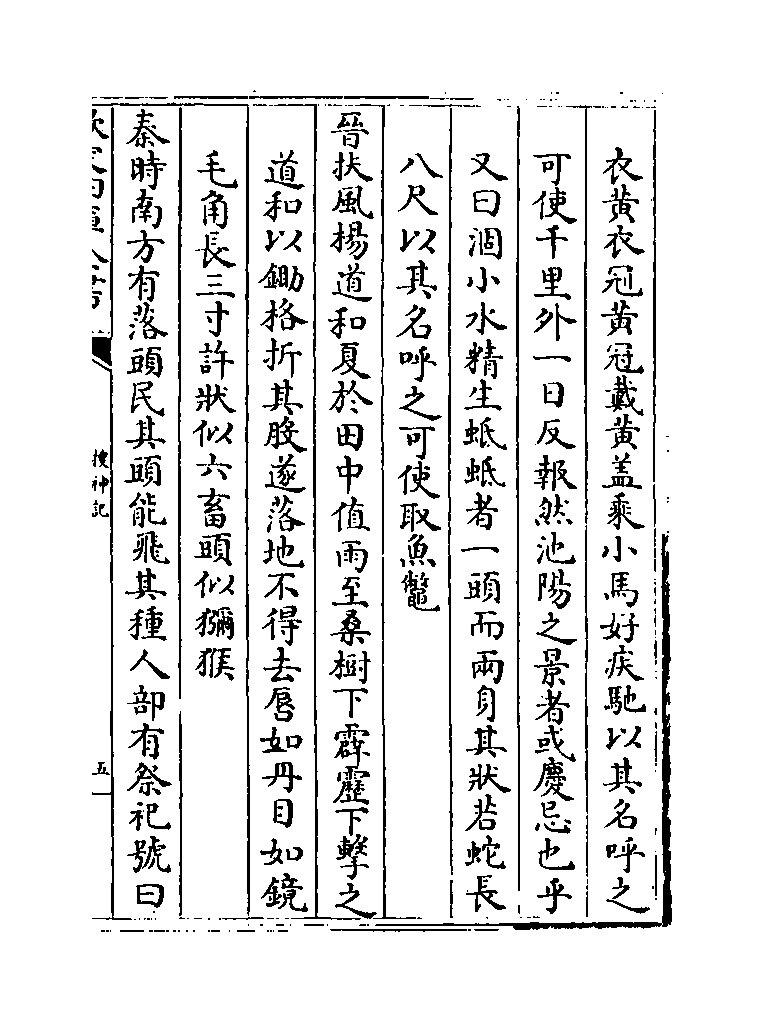 衣黄衣冠黄冠戴黄盖乘小馬好疾馳以其名呼之
可使千里外一日反報然池陽之景者或慶忌也乎
又曰涸小水精生蚳蚳者一頭而兩身其狀若蛇長
八尺以其名呼之可使取魚鼈
晉扶風楊道和夏於田中值雨至桑樹下霹靂下擊之
道和以鋤格折其股遂落地不得去唇如丹目如鏡
毛角長三寸許狀似六畜頭似獼猴
秦時南方有落頭民其頭能飛其種人部有祭祀號曰
搜神記
五